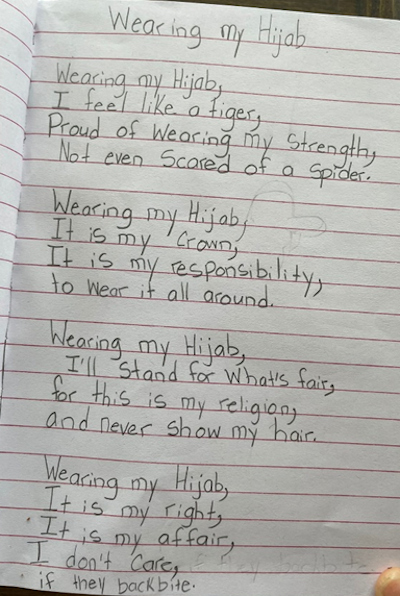 Wearing my Hijab
Wearing my Hijab,
I feel like a tiger,
Proud of wearing my strength,
Not even scared of a spider.
Wearing my Hijab,
It is my crown,
It is my responsibility,
to wear it all around.
Wearing my Hijab,
I'll stand for what's fair,
for this is my religion,
and never show my hair.
Wearing my Hijab,
It is my right,
It is my affair,
I don't care,
if they backbite.